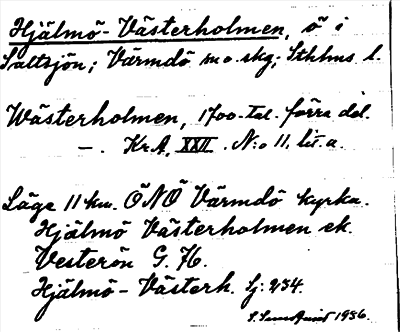 Hjälmö-Västerholmen, ö i
Saltsjön; Värmdö m o skg; Sthlms l.
Wästerholmen, 1700-tal. förra del.
—. Kr.A. XXII. N:o 11. lit. a.
Läge 11 km. ÖNÖ Värmdö kyrka.
Hjälmö Västerholmen ek.
Vesterön G. 76.
Hjälmö-Västerh. Sj: 234.
1936.